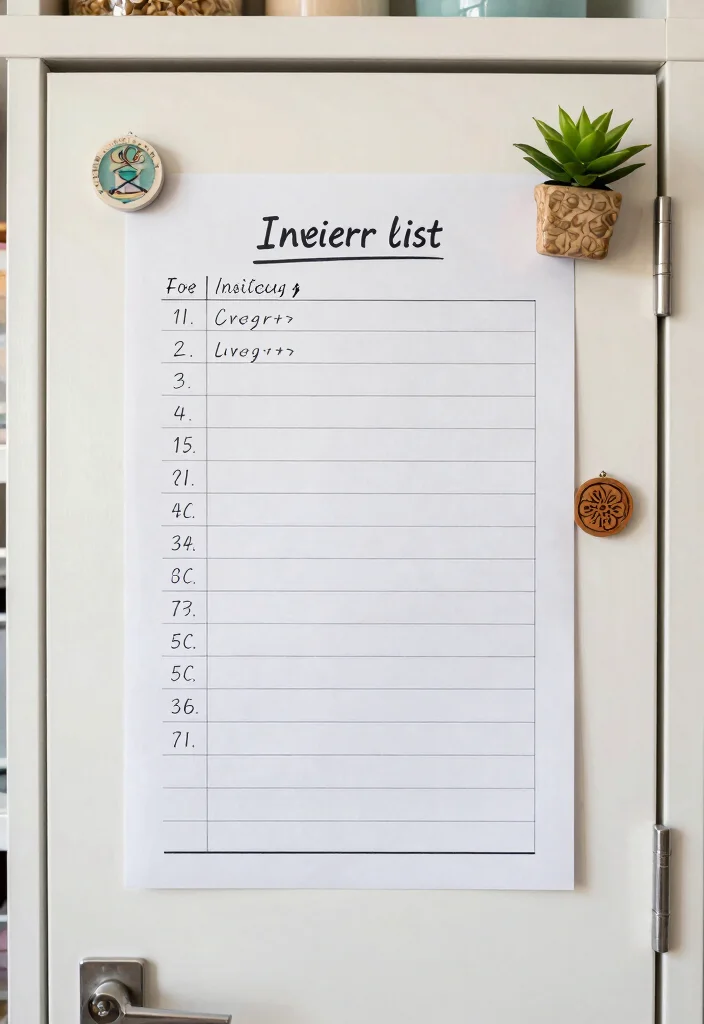 Ineierr list
Foe Insitcug
11. Cvegr++>
2. Liveg++>
3.
4.
15.
21.
4C.
34.
8C.
73.
5C.
5C.
36.
71.